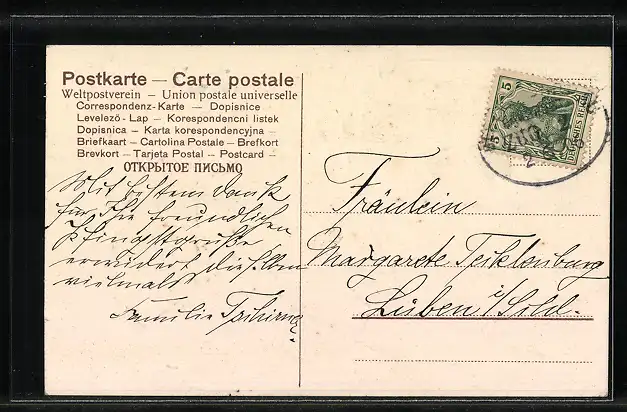 Postkarte — Carte postale
Weltpostverein – Union postale universelle
Correspondenz-Karte – Dopisnice
Levelező-Lap – Korespondencni listek
Dopisnica – Karta korespondencyjna –
Briefkaart – Cartolina Postale – Brefkort
Brevkort – Tarjeta Postal – Postcard –
ОТКРЫТОЕ ПИСЬМО
Mit bestem Dank
für Ihre freundlichen
Pfingstgrüße
erwidert dieselben
vielmals
Familie
5
DEUTSCHES REICH
2
Fräulein
Margarete Tecklenburg
i/Sold.